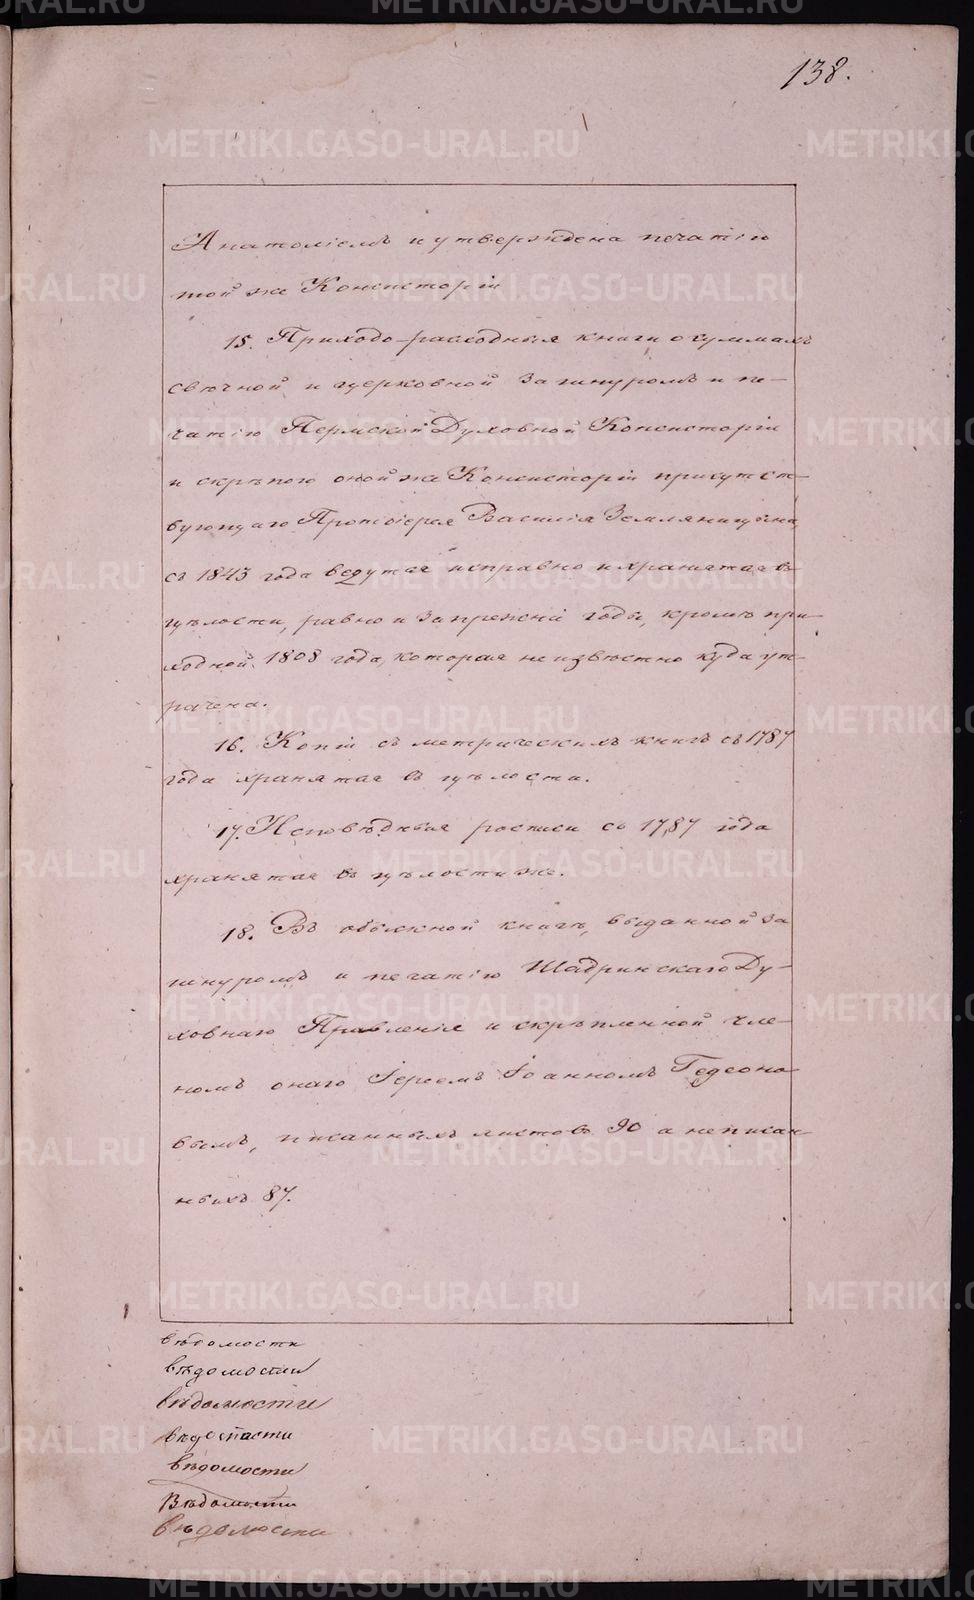 138.
Анатоліемъ и утверждена печатію
той же Консисторіи
15. Приходо-расходныя книги о суммахъ
свѣчной и церковной за шнуромъ и пе-
чатію Пермской Духовной Консисторіи
и скрѣпою оной же Консисторіи присутст-
вующаго Протоіерея Василія Земляницына,
съ 1843 года ведутся исправно и хранятся въ
цѣлости, равно и за прежніе годы, кромѣ при-
ходной 1808 года, которая неизвѣстно куда ут-
рачена.
16. Копіи съ метрическихъ книгъ съ 1787
года хранятся въ цѣлости.
17. Исповѣдныя росписи съ 1787 года
хранятся въ цѣлости же.
18. Въ обыскной книгѣ, выданной за
шнуромъ и печатію Шадринскаго Ду-
ховнаго Правленія и скрѣпленной чле-
номъ онаго Іереемъ Іоанномъ Гедеоно-
вымъ, писанныхъ листовъ 90 а неписан-
ныхъ 87.
вѣдомости
вѣдомости
вѣдомости
вѣдомости
Вѣдомости
вѣдомости
METRIKI.GASO-URAL.RU